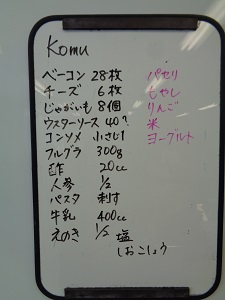 Komu
ベーコン 28枚
チーズ 6枚
じゃがいも 8個
ウスターソース 40
コンソメ 小さじ1
フルグラ 300g
酢 20cc
人参 1/2
パスタ 刺す
牛乳 400cc
えのき 1/2
塩
しおこしょう
パセリ
もやし
りんご
米
ヨーグルト